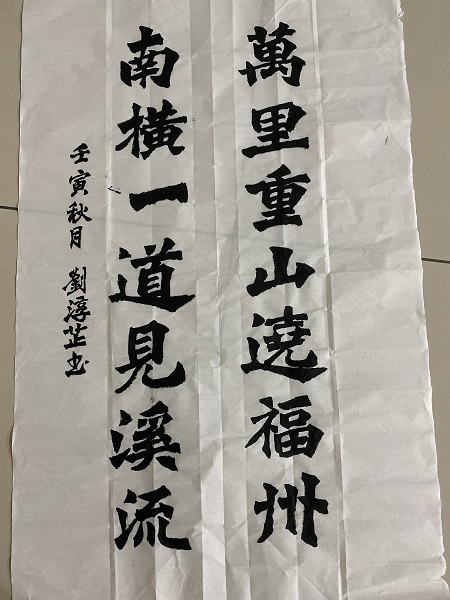 萬里重山遶福州
南橫一道見溪流
壬寅秋月 劉淳芷书